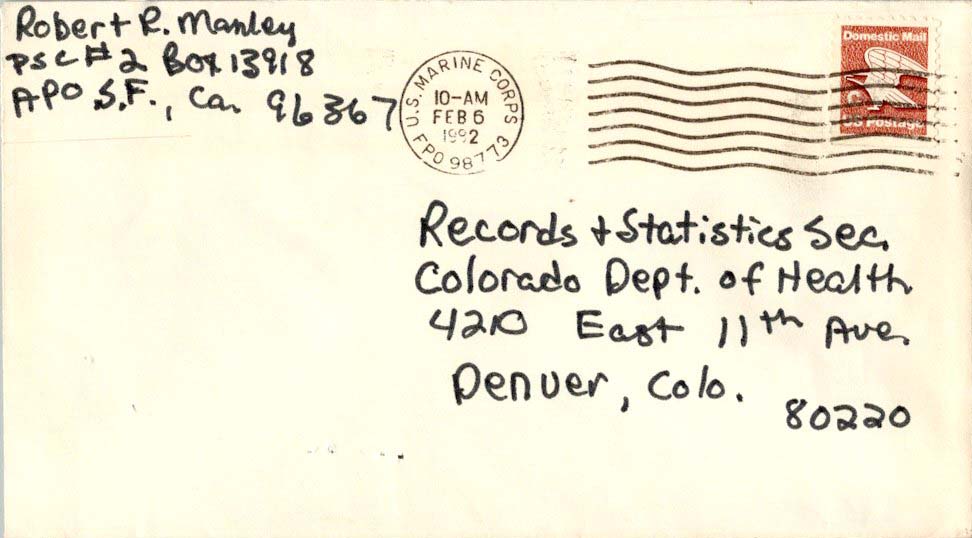 Robert R. Manley
PSC #2 Box 13918
APO S.F., Ca. 96367
U.S. MARINE CORPS
10-AM
FEB 6
1992
FPO 98773
Domestic Mail
C
US Postage
Records + Statistics Sec.
Colorado Dept. of Health
4210 East 11th Ave.
Denver, Colo.
80220